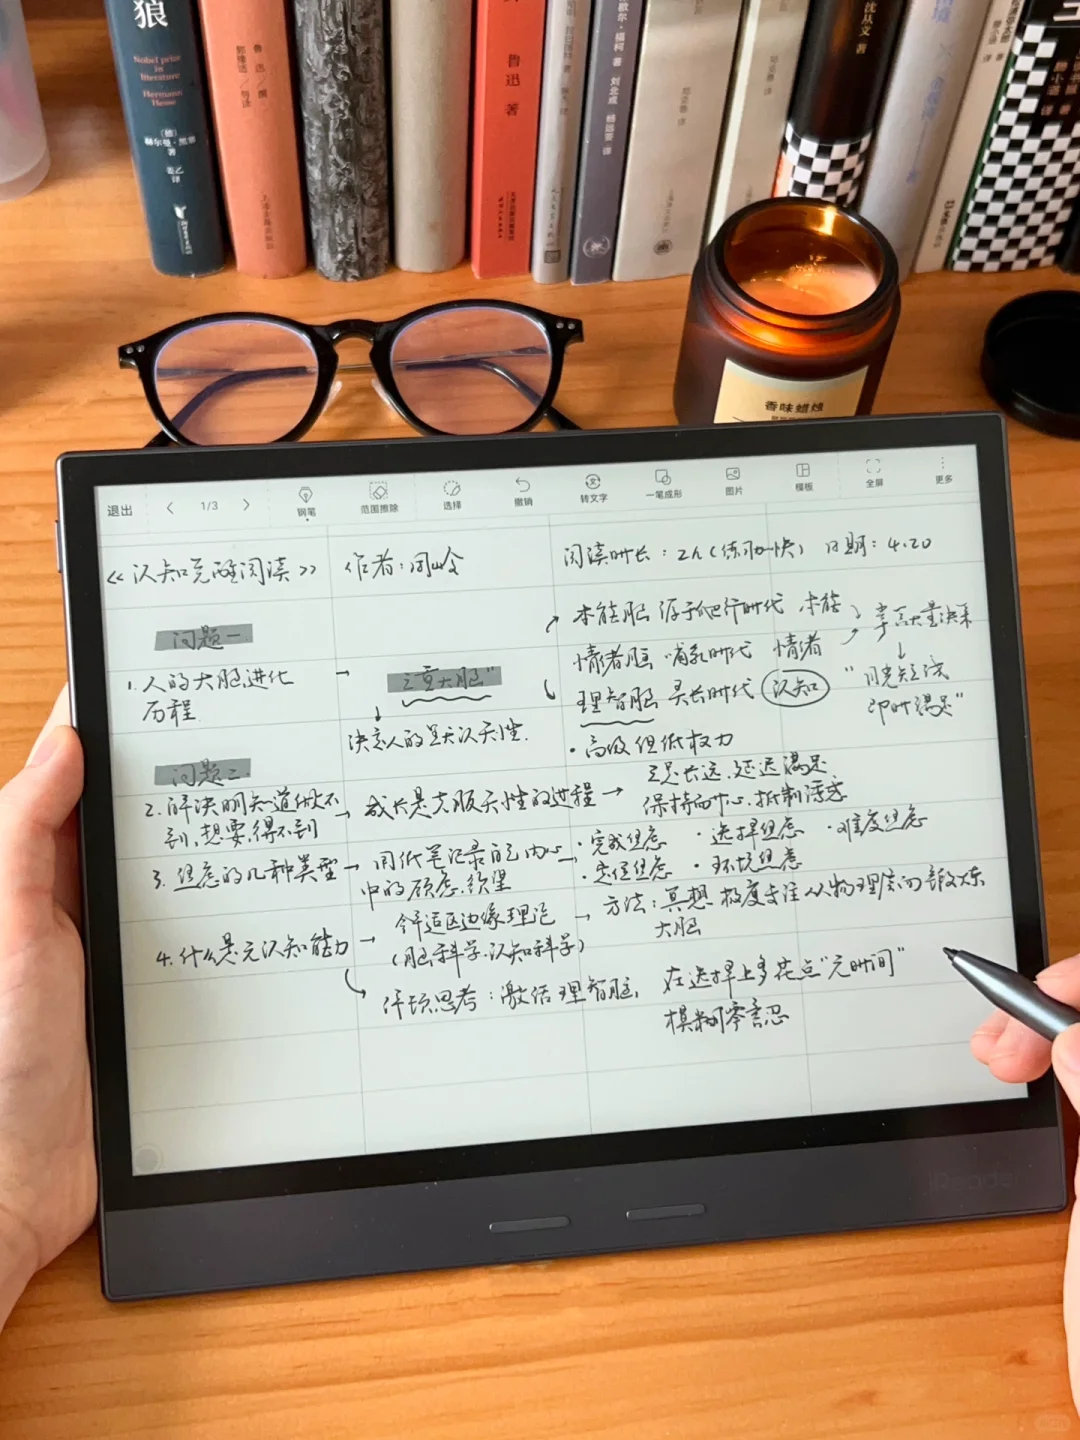 狼
Nobel prize
in
literature
Hermann
Hesse
赫尔曼·黑塞
著
姜乙
译
鲁迅 撰
郭豫适 导读
鲁迅 著
刘北成 杨远婴 译
沈从文 著
香味蜡烛
退出
1/3
钢笔
范围擦除
选择
撤销
转文字
一笔成形
图片
模板
全屏
更多
《认知觉醒阅读》 作者:周岭 阅读时长:2h(练加快) 日期:4.20
问题一
1.人的大脑进化
历程
→ "三重大脑"
决定人的是天性.
本能脑 源于爬行时代 本能
情绪脑 哺乳时代 情绪
理智脑 灵长时代 认知
·高级但低权力
掌大量决策
"目光短浅
即时满足"
问题二
2.解决明知道做不
到,想要,得不到
→ 成长是克服天性的过程 →
立足长远,延迟满足
保持耐心,抵制诱惑
3.焦虑的几种类型 → 用纸笔记录自己内心
中的顾虑、欲望
·完成焦虑 ·选择焦虑 ·难度焦虑
·定位焦虑 ·环境焦虑
4.什么是元认知能力 → 舒适区边缘理论
(脑科学、认知科学)
→ 方法:冥想 极度专注 从物理层面锻炼
大脑
仔顿思考:激活理智脑, 在选择上多花点"元时间"
模糊零容忍
iReader